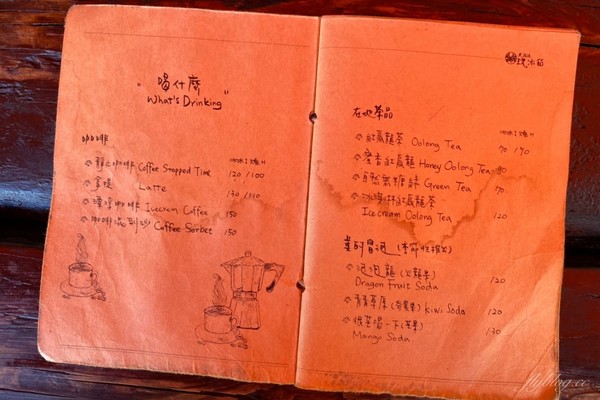 "喝什麼"
"What's Drinking"
咖啡
"冰 | 燒"
靜止咖啡 Coffee Stopped Time 120 / 100
拿堤 Latte 130 / 110
咖啡 Icecream Coffee 150
咖啡 Coffee Sorbet 150
在地茶品
"冰 | 燒"
紅烏龍茶 Oolong Tea 70 / 70
蜜香紅烏龍 Honey Oolong Tea 80
自然無糖綠 Green Tea 70
紅烏龍茶
Icecream Oolong Tea 120
冒泡
泡泡龍 (火龍果) 120
Dragon Fruit Soda
青青草原 (奇異果) kiwi Soda 120
一下 (芒果) 130
Mango Soda
flyblog.cc